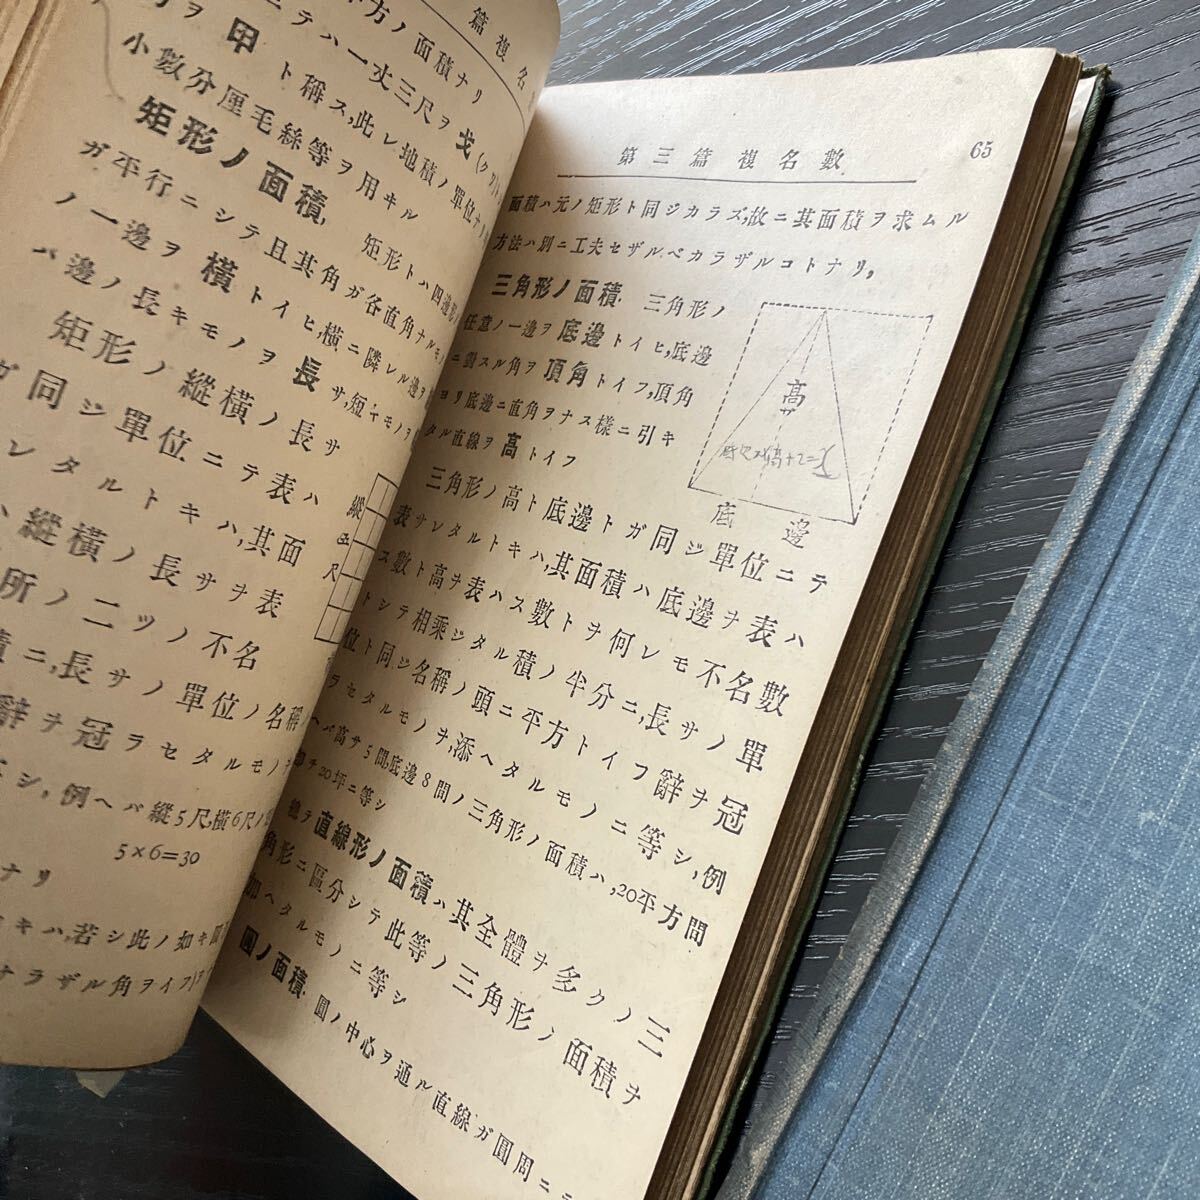 篇 複 名
方ノ面積ナリ
テハ一丈三尺ヲ戈
甲ト稱ス,此レ地積ノ單位ナ
小數分厘毛絲等ヲ用キル
矩形ノ面積. 矩形トハ四邊形
ガ平行ニシテ且其角ガ各直角ナルモ
ノ一邊ヲ橫トイヒ,橫ニ隣レル邊ヲ
バ邊ノ長キモノヲ長サ,短キモノヲ
矩形ノ縱橫ノ長サ
ガ同ジ單位ニテ表ハ
レタルトキハ,其面
縱橫ノ長サヲ表
所ノ二ツノ不名
ニ,長サノ單位ノ名稱
辭ヲ冠ラセタルモノ
シ,例ヘバ縱5尺,橫6尺ノ
5×6=30
ナリ
キハ,若シ此ノ如キ
ナラザル角ヲイフ
縱
五
尺
第三篇 複名數 65
面積ハ元ノ矩形ト同ジカラズ,故ニ其面積ヲ求ムル
方法ハ別ニ工夫セザルベカラザルコトナリ,
三角形ノ面積. 三角形ノ
任意ノ一邊ヲ底邊トイヒ,底邊
ニ對スル角ヲ頂角トイフ,頂角
ヨリ底邊ニ直角ヲナス樣ニ引キ
タル直線ヲ高トイフ
高サ
底邊
三角形ノ高ト底邊トガ同ジ單位ニテ
表サレタルトキハ,其面積ハ底邊ヲ表ハ
ス數ト高ヲ表ハス數トヲ何レモ不名數
トシテ相乘ジタル積ノ半分ニ,長サノ單
位ト同ジ名稱ノ頭ニ平方トイフ辭ヲ冠
ラセタルモノヲ,添ヘタルモノニ等シ,例
ヘバ高サ5間,底邊8間ノ三角形ノ面積ハ,20平方間
即チ20坪ニ等シ
總テ直線形ノ面積ハ其全體ヲ多クノ三
角形ニ區分シテ此等ノ三角形ノ面積ヲ
加ヘタルモノニ等シ
圓ノ面積. 圓ノ中心ヲ通ル直線ガ圓周ニテ